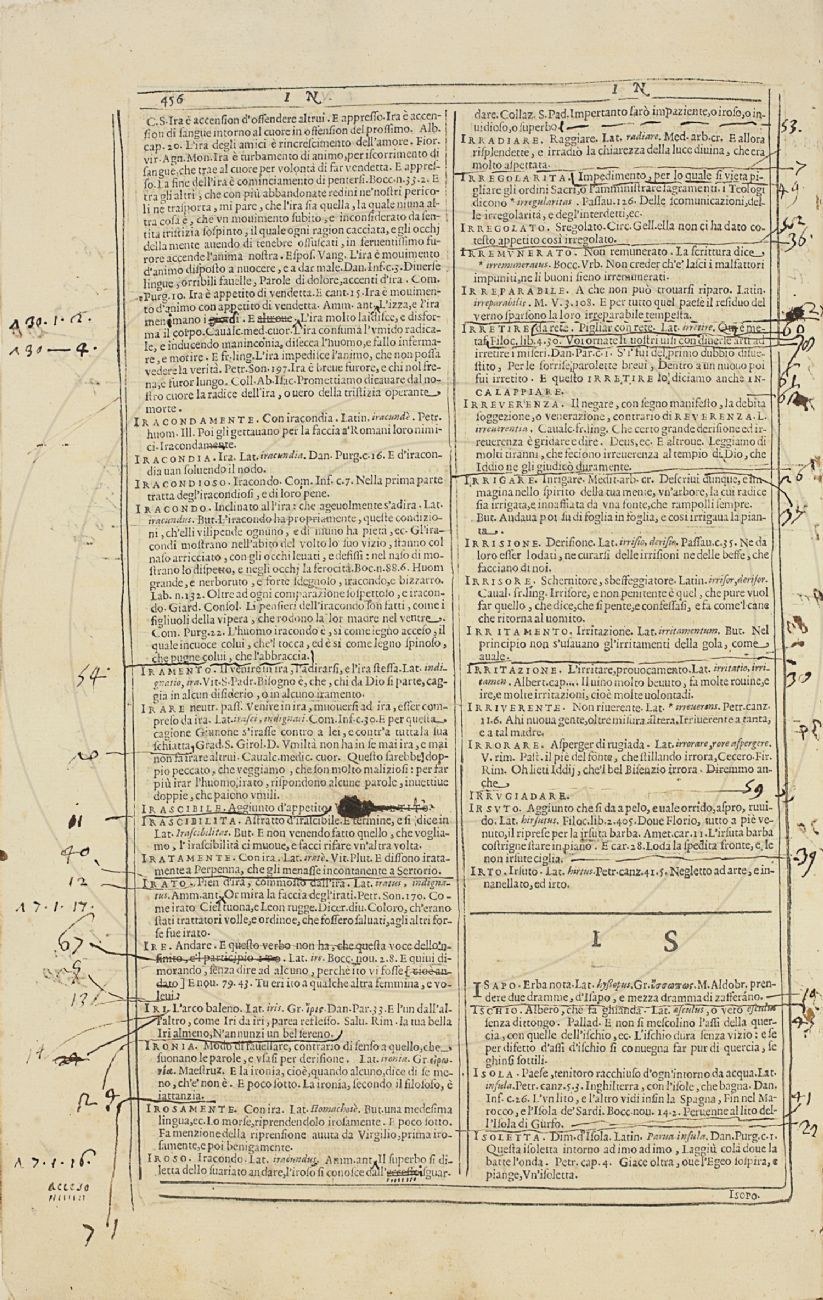 456 I N
I N
C.S. Ira è accension d'offendere altrui. E appresso. Ira è accen-
sion di sangue intorno al cuore in offension del prossimo. Alb.
cap. 20. L'ira degli amici è rincrescimento dell'amore. Fior.
vir. Agn. Mon. Ira è turbamento di animo, per iscorrimento di
sangue, che trae al cuore per volontà di far vendetta. E appres-
so. La fine dell'ira è cominciamento di pentersi. Bocc. n. 33. 2. E
tra gli altri, che con più abbandonate redini ne' nostri perico-
li ne trasporta, mi pare, che l'ira sia quella, la quale niuna al-
tra cosa è, che vn mouimento subito, e inconsiderato da sen-
tita tristizia sospinto, il quale ogni ragion cacciata, e gli occhj
della mente auendo di tenebre offuscati, in feruentissimo fu-
rore accende l'anima nostra. Espos. Vang. L'ira è mouimento
d'animo disposto a nuocere, e a dar male. Dan. Inf. c. 3. Diuerse
lingue, orribili fauelle, Parole di dolore, accenti d'ira. Com.
Purg. 10. Ira è appetito di vendetta. E cant. 15. Ira è mouimen-
to d'animo con appetito di vendetta. Amm. ant. L'izza, e l'ira
menimano i gradi. E altroue. L'ira molto laidisce, e disfor-
ma il corpo. Caualc. med. cuor. L'ira consuma l'vmido radica-
le, e inducendo maninconia, disecca l'huomo, e fallo inferma-
re, e morire. E fr. ling. L'ira impedisce l'animo, che non possa
vedere la verità. Petr. Son. 197. Ira è breue furore, e chi nol fre-
na, è furor lungo. Coll. Ab. Isac. Promettiamo dicauare dal no-
stro cuore la radice dell'ira, o uero della tristizia operante
morte.
IRACONDAMENTE. Con iracondia. Latin. iracundè. Petr.
huom. Ill. Poi gli gettauano per la faccia a' Romani loro nimi-
ci. Iracondamente.
IRACONDIA. Ira. Lat. iracundia. Dan. Purg. c. 16. E d'iracon-
dia uan soluendo il nodo.
IRACONDIOSO. Iracondo. Com. Inf. c. 7. Nella prima parte
tratta degl'iracondiosi, e di loro pene.
IRACONDO. Inclinato all'ira: che ageuolmente s'adira. Lat.
iracundus. But. L'iracondo ha propriamente, queste condizio-
ni, ch'elli vilipende ognuno, e di nsuno ha pietà, ec. Gl'ira-
condi mostrano nell'abito del volto lo suo vizio, stanno col
naso arricciato, con gli occhi leuati, e defissi: nel naso di mo-
strano lo dispetto, e negli occhj la ferocità. Bocc. n. 88. 6. Huom
grande, e nerboruto, e forte sdegnoso, iracondo, e bizzarro.
Lab. n. 132. Oltre ad ogni comparazione sospettoso, e iracon-
do. Giard. Consol. Li pensieri dell'iracondo son fatti, come i
figliuoli della vipera, che rodono la lor madre nel ventre.
Com. Purg. 22. L'huomo iracondo è, sì come legno acceso, il
quale incuoce colui, che'l tocca, ed è sì come legno spinoso,
che pugne colui, che l'abbraccia.
IRAMENTO. Il venire in ira, l'adirarsi, e l'ira stessa. Lat. indi-
gnatio, ira. Vit. S. Padr. Bisogno è, che, chi da Dio si parte, cag-
gia in alcun disiderio, o in alcuno iramento.
IRARE neutr. pass. Venire in ira, muouersi ad ira, esser com-
preso da ira. Lat. irasci, indignari. Com. Inf. c. 30. E per questa
cagione Giunone s'irasse contro a lei, e contr'a tutta la sua
schiatta. Grad. S. Girol. D. Vmiltà non ha in se mai ira, e mai
non fa irare altrui. Caualc. medic. cuor. Questo sarebbe dop-
pio peccato, che veggiamo, che son molto maliziosi: per far
più irar l'huomo, irato, rispondono alcune parole, inuettiue
doppie, che paiono vmili.
IRASCIBILE. Aggiunto d'appetito,
IRASCIBILITA. Astratto d'irascibile. E termine, e si dice in
Lat. Irascibilitas. But. E non venendo fatto quello, che voglia-
mo, l'irascibilità ci muoue, e facci rifare vn'altra volta.
IRATAMENTE. Con ira. Lat. iratè. Vit. Plut. E dissono irata-
mente a Perpenna, che gli menasse incontanente a Sertorio.
IRATO. Pien d'ira, commosso dall'ira. Lat. iratus, indigna-
tus. Amm. ant. Or mira la faccia degl'irati. Petr. Son. 170. Co-
me irato Ciel tuona, e Leon rugge. Dicer. diu. Coloro, ch'erano
stati trattatori volle, e ordinoe, che fossero saluati, agli altri for-
se fue irato.
IRE. Andare. E questo verbo non ha, che questa voce dello'n-
finito, e'l participio ito. Lat. ire. Bocc. nou. 2. 8. E quiui di-
morando, senza dire ad alcuno, perche ito vi fosse [ cioè an-
dato ] E nou. 79. 43. Tu eri ito a qualche altra femmina, e vo-
leui
IRI. L'arco baleno. Lat. iris. Gr. ἶρις. Dan. Par. 33. E l'un dall'al-
l'altro, come Iri da iri, parea reflesso. Salu. Rim. Ia tua bella
Iri almeno, N'annunzi un bel sereno.
IRONIA. Modo di fauellare, contrario di senso a quello, che
suonano le parole, e vsasi per derisione. Lat. ironia. Gr. εἰρω-
νεία. Maestruz. E la ironia, cioè, quando alcuno, dice di se me-
no, ch'e' non è. E poco sotto. La ironia, secondo il filosofo, è
iattanzia.
IROSAMENTE. Con ira. Lat. stomachosè. But. una medesima
lingua, ec. Lo morse, riprendendolo irosamente. E poco sotto.
Fa menzione della riprensione auuta da Virgilio, prima iro-
samente, e poi benignamente.
IROSO. Iracondo. Lat. iracundus. Amm. ant. Il superbo si di-
letta dello suariato andare, l'iroso si conosce dall' sguar-
dare. Collaz. S. Pad. Impertanto sarò impaziente, o iroso, o in-
uidioso, o superbo
IRRADIARE. Raggiare. Lat. radiare. Med. arb. cr. E allora
risplendette, e irradiò la chiarezza della luce diuina, che era
molto aspettata.
IRREGOLARITA. Impedimento, per lo quale si vieta pi-
gliare gli ordini Sacri, o l'amministrare sagramenti. i Teologi
dicono * irregularitas. Passau. 126. Delle scomunicazioni, del-
le irregolarità, e degl'interdetti, ec.
IRREGOLATO. Sregolato. Circ. Gell. ella non ci ha dato co-
testo appetito così irregolato.
IRREMVNERATO. Non remunerato. La scrittura dice
* irremuneratus. Bocc. Vrb. Non creder ch'e' lasci i malfattori
impuniti, ne li buoni sieno irremunerati.
IRREPARABILE. A che non può trouarsi riparo. Latin.
irreparabilis. M. V. 3. 108. E per tutto quel paese il residuo del
verno sparsono la loro irreparabile tempesta.
IRRETIRE da rete. Pigliar con rete. Lat. irretire. Qui è me-
taf. Filoc. lib. 4. 30. Voi ornate li uostri uisi con diuerse arti ad
irretire i miseri. Dan. Par. c. 1. S'i' fui del primo dubbio disue-
stito, Per le sorrise, parolette breui, Dentro a un nuouo più
fui irretito. E questo IRRETIRE lo diciamo anche IN-
CALAPPIARE.
IRREVERENZA. Il negare, con segno manifesto, la debita
soggezione, o venerazione, contrario di REVERENZA. L.
irreuerentia. Caualc. fr. ling. Che certo grande derisione ed ir-
reuerenza è gridare e dire. Deus, ec. E altroue. Leggiamo di
molti tiranni, che feciono irreuerenza al tempio di Dio, che
Iddio ne gli giudicò duramente.
IRRIGARE. Inrigare. Medit. arb. cr. Descriui dunque, e im
magina nello spirito della tua mente, vn'arbore, la cui radice
sia irrigata, e innaffiata da vna fonte, che rampolli sempre.
But. Andaua poi su di foglia in foglia, e così irrigaua la pian-
ta.
IRRISIONE. Derisione. Lat. irrisio, derisio. Passau. c. 35. Ne da
loro esser lodati, ne curarsi delle irrisioni ne delle beffe, che
facciano di noi.
IRRISORE. Schernitore, sbeffeggiatore. Latin. irrisor, derisor.
Caual. fr. ling. Irrisore, e non penitente è quel, che pure vuol
far quello, che dice, che si pente, e confessasi, e fa come'l cane
che ritorna al uomito.
IRRITAMENTO. Irritazione. Lat. irritamentum. But. Nel
principio non s'usauano gl'irritamenti della gola, come
auale.
IRRITAZIONE. L'irritare, prouocamento. Lat. irritatio, irri-
tamen. Albert. cap.... Il uino molto beuuto, fa molte rouine, e
ire, e molte irritazioni, cioè male uolontadi.
IRRIVERENTE. Non riuerente. Lat. * irreuerens. Petr. canz.
11. 6. Ahi nuoua gente, oltre misura altera, Irriuerente a tanta,
e a tal madre.
IRRORARE. Asperger di rugiada. Lat. irrorare, rore aspergere.
V. rim. Past. il piè del fonte, che stillando irrora, Cecero. Fir.
Rim. Oh lieti Iddij, che'l bel Bisenzio irrora. Diremmo an-
che
IRRVGIADARE.
IRSVTO. Aggiunto che si da a pelo, e uale orrido, aspro, ruui-
do. Lat. hirsutus. Filoc. lib. 2. 405. Doue Florio, tutto a piè ve-
nuto, il riprese per la irsuta barba. Amet. car. 11. L'irsuta barba
costrigne stare in piano. E car. 28. Loda la spedita fronte, e, le
non irsute ciglia.
IRTO. Irsuto. Lat. hirtus. Petr. canz. 41. 5. Negletto ad arte, e in-
nanellato, ed irto.
I S
ISAPO. Erba nota. Lat. hyssopus. Gr. ὕσσωπος. M. Aldobr. pren-
dere due dramme, d'Isapo, e mezza dramma di zafferano.
ISCHIO. Albero, che fa ghianda. Lat. esculus, o vero æsculus
senza dittongo. Pallad. E non si mescolino l'assi della quer-
cia, con quelle dell'ischio, ec. L'ischio dura senza vizio: e se
per difetto d'assi d'ischio si conuegna far pur di quercia, se
ghinsi sottili.
ISOLA. Paese, tenitoro racchiuso d'ogn'intorno da acqua. Lat.
insula. Petr. canz. 5. 3. Inghilterra, con l'isole, che bagna. Dan.
Inf. c. 26. L'vn lito, e l'altro vidi insin la Spagna, Fin nel Ma-
rocco, e l'Isola de' Sardi. Bocc. nou. 14. 2. Peruenne al lito del-
l'Isola di Gurfo.
ISOLETTA. Dim. d'Isola. Latin. Parua insula. Dan. Purg. c. 1.
Questa isoletta intorno ad imo ad imo, Laggiù colà doue la
batte l'onda. Petr. cap. 4. Giace oltra, oue l'Egeo sospira, e
piange, Vn'isoletta.
Isopo.
54
11
40
12
1 7. 1. 17.
67
13
1 7. 1. 16.
acceso
71
53.
7
36.
37
30
59
39
41